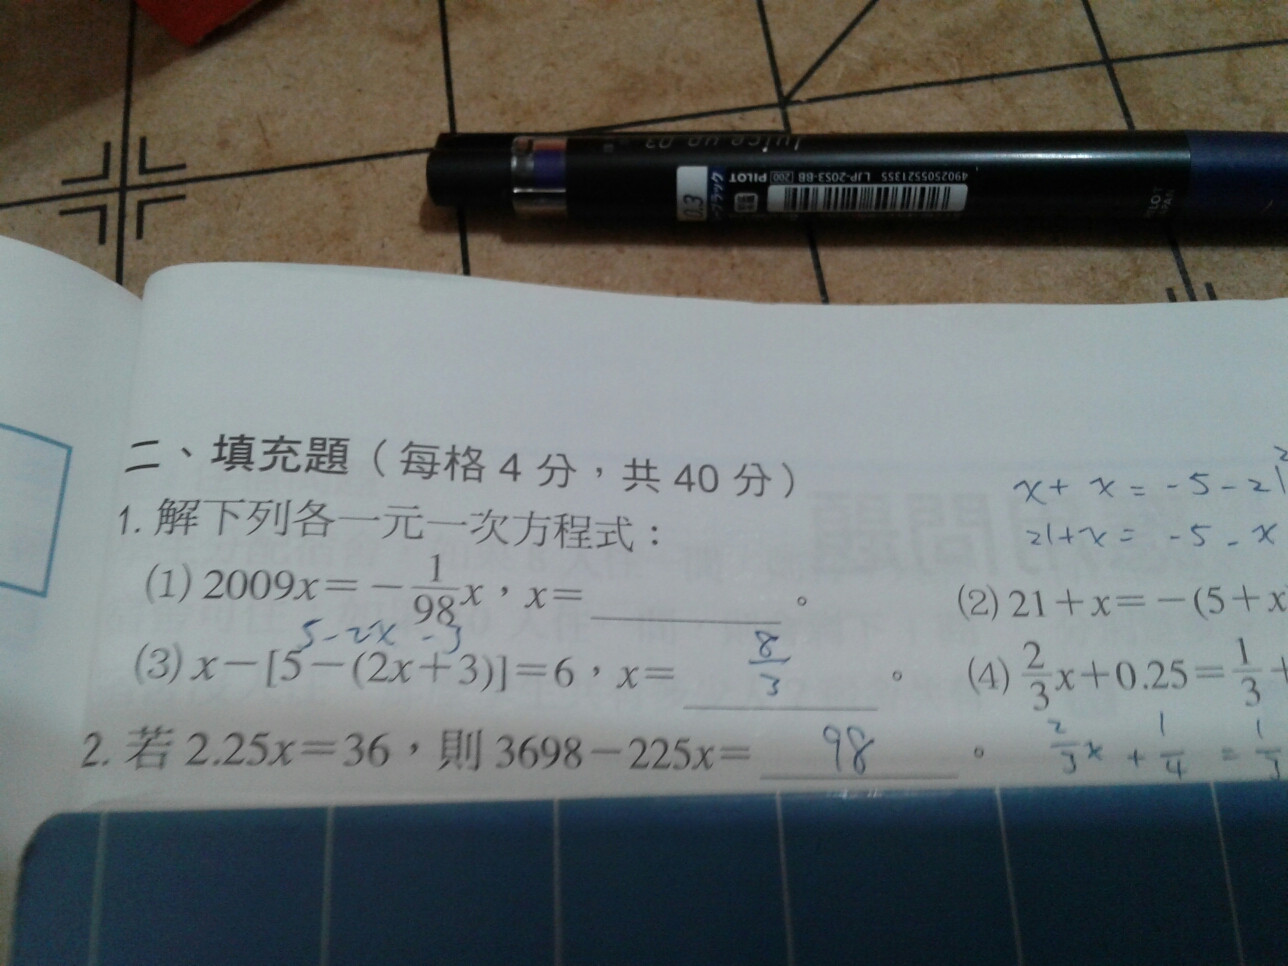 Juice up 03
0.3
PILOT 200 LJP-20S3-BB 4902505521355
PILOT
JAPAN
二、填充題（每格 4 分，共 40 分）
1. 解下列各一元一次方程式：
x + x = -5 - 21
21 + x = -5 - x
(1) 2009x = -1/98 x，x = ________。
(2) 21 + x = -(5 + x
5 - 2x - 3
(3) x - [5 - (2x + 3)] = 6，x = 8/3。
(4) 2/3 x + 0.25 = 1/3 +
2. 若 2.25x = 36，則 3698 - 225x = 98。
2/3 x + 1/4 = 1/3